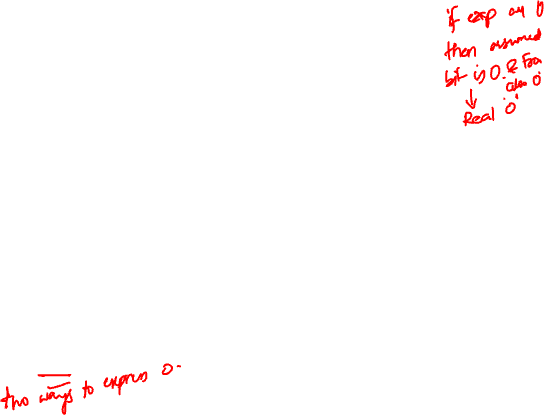 if exp all 0
then assumed
bit is 0. & Fra
also 0
Real '0'
two ways to express 0.